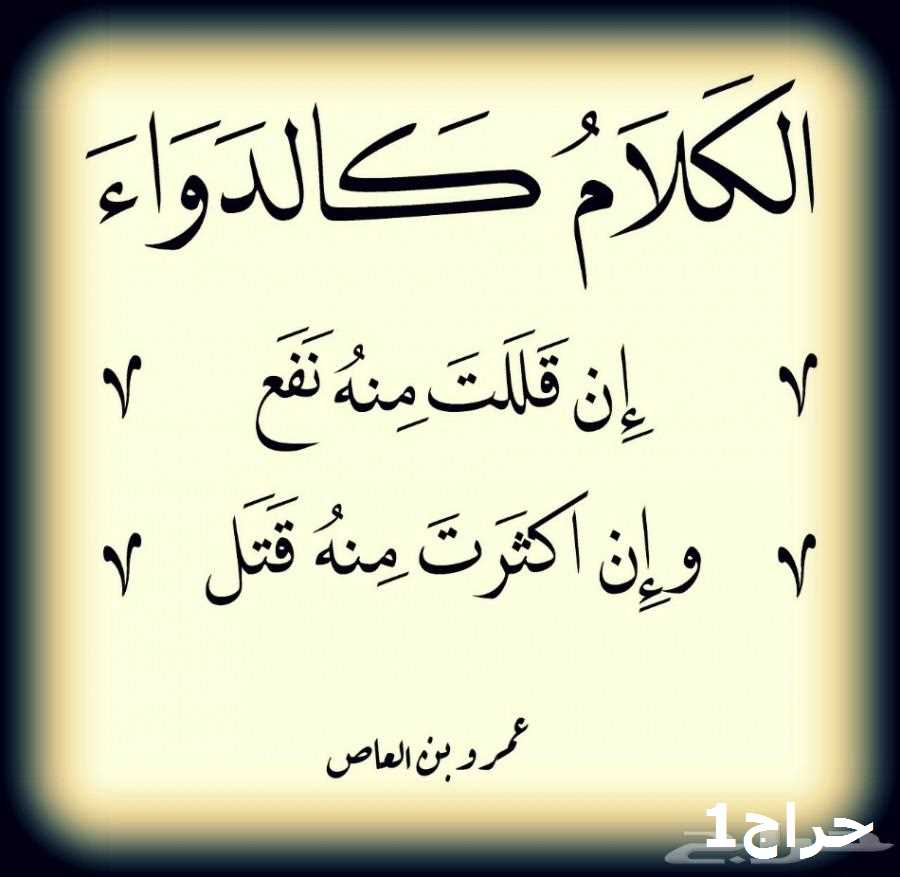 الكَلَامُ كَالدَوَاءَ
إِن قَلَلتَ مِنهُ نَفَع
وإِن اكثَرتَ مِنهُ قَتَل
عمرو بن العاص
حراج1